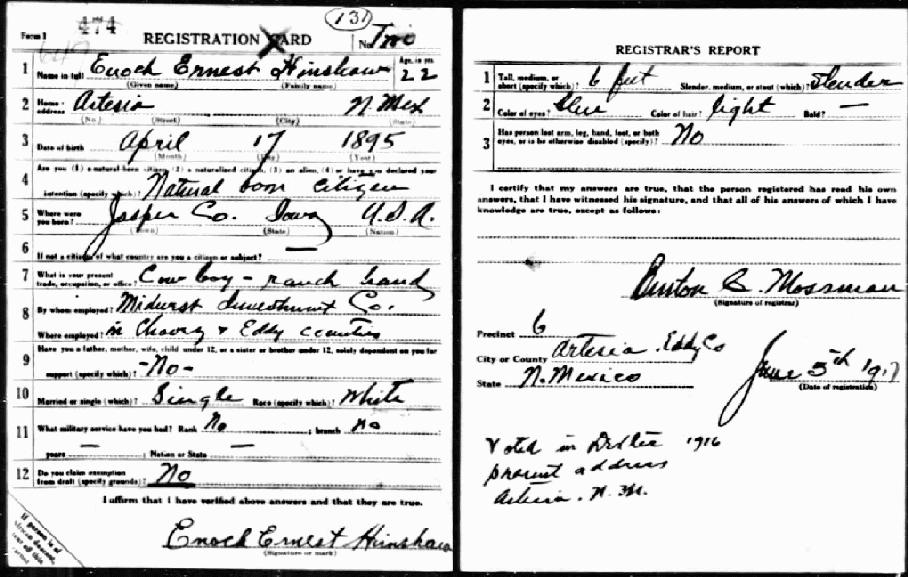 474
131
Form 1
REGISTRATION CARD
No. Two
1 Name in full Enoch Ernest Hinshaw Age, in yrs. 22
(Given name) (Family name)
2 Home address Artesia N Mex
(No.) (Street) (City) (State)
3 Date of birth April 17 1895
(Month) (Day) (Year)
4 Are you (1) a natural-born citizen, (2) a naturalized citizen, (3) an alien, (4) or have you declared your
intention (specify which)? Natural born citizen
5 Where were you born? Jasper Co. Iowa U.S.A.
(Town) (State) (Nation)
6 If not a citizen, of what country are you a citizen or subject? —
7 What is your present trade, occupation, or office? Cow boy - ranch hand
8 By whom employed? Midwest Investment Co.
Where employed? in Chaves & Eddy counties
9 Have you a father, mother, wife, child under 12, or a sister or brother under 12, solely dependent on you for
support (specify which)? -No-
10 Married or single (which)? Single Race (specify which)? White
11 What military service have you had? Rank No ; branch no
years — ; Nation or State —
12 Do you claim exemption from draft (specify grounds)? No
I affirm that I have verified above answers and that they are true.
Enoch Ernest Hinshaw
(Signature or mark)
If person is of
REGISTRAR'S REPORT
1 Tall, medium, or short (specify which)? 6 feet Slender, medium, or stout (which)? Slender
2 Color of eyes? blue Color of hair? light Bald? —
3 Has person lost arm, leg, hand, foot, or both eyes, or is he otherwise disabled (specify)? No
I certify that my answers are true, that the person registered has read his own
answers, that I have witnessed his signature, and that all of his answers of which I have
knowledge are true, except as follows:
Burton C. Mossman
(Signature of registrar)
Precinct 6
City or County Artesia. Eddy Co
State N. Mexico
June 5th 1917
(Date of registration)
Voted in 1916
present address
Artesia. N. M.